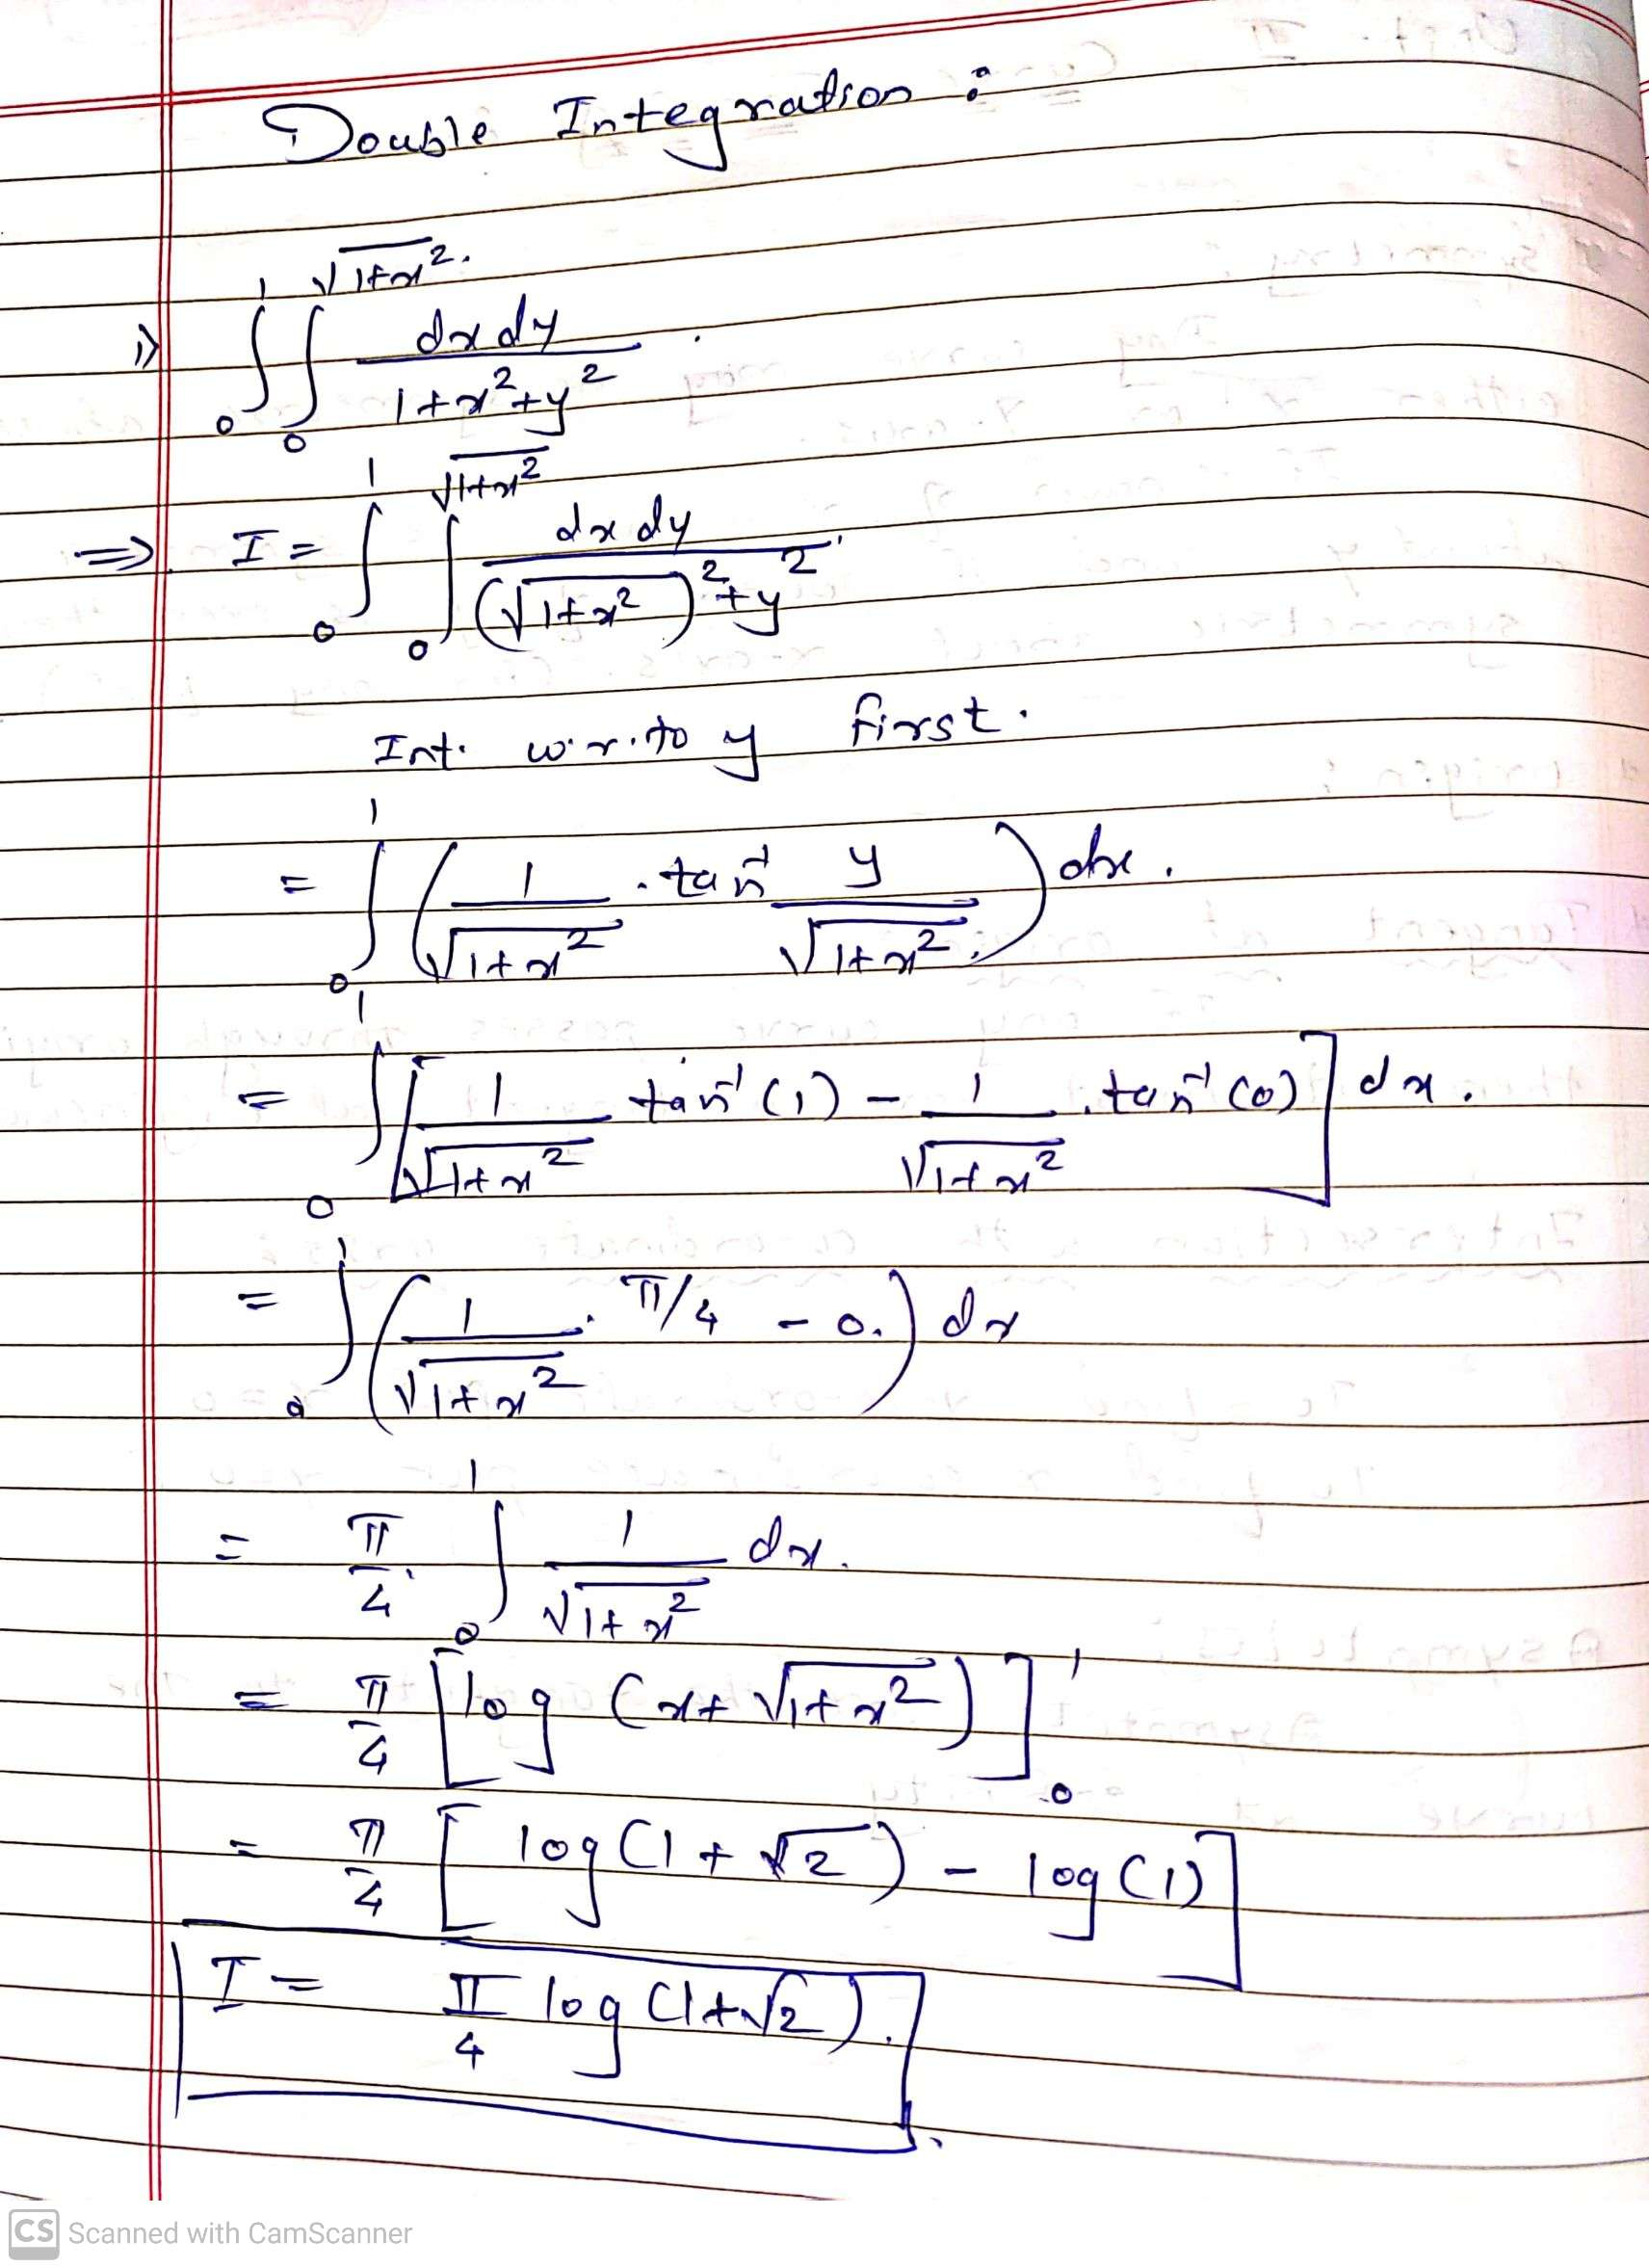 Double Integration :
1) ∫₀¹ ∫₀^√(1+x²) dx dy / (1+x²+y²) .
⇒ I = ∫₀¹ ∫₀^√(1+x²) dx dy / ((√(1+x²))²+y²)
Int. w.r.to y first.
= ∫₀¹ ( 1/√(1+x²) . tan⁻¹ y/√(1+x²) ) dx .
= ∫₀¹ [ 1/√(1+x²) tan⁻¹(1) – 1/√(1+x²) . tan⁻¹(0) ] dx .
= ∫₀¹ ( 1/√(1+x²) . π/4 – 0. ) dx
= π/4 . ∫₀¹ 1/√(1+x²) dx.
= π/4 [ log (x+√(1+x²)) ]₀¹
= π/4 [ log(1+√2) – log(1) ]
I = π/4 log(1+√2).
CS Scanned with CamScanner